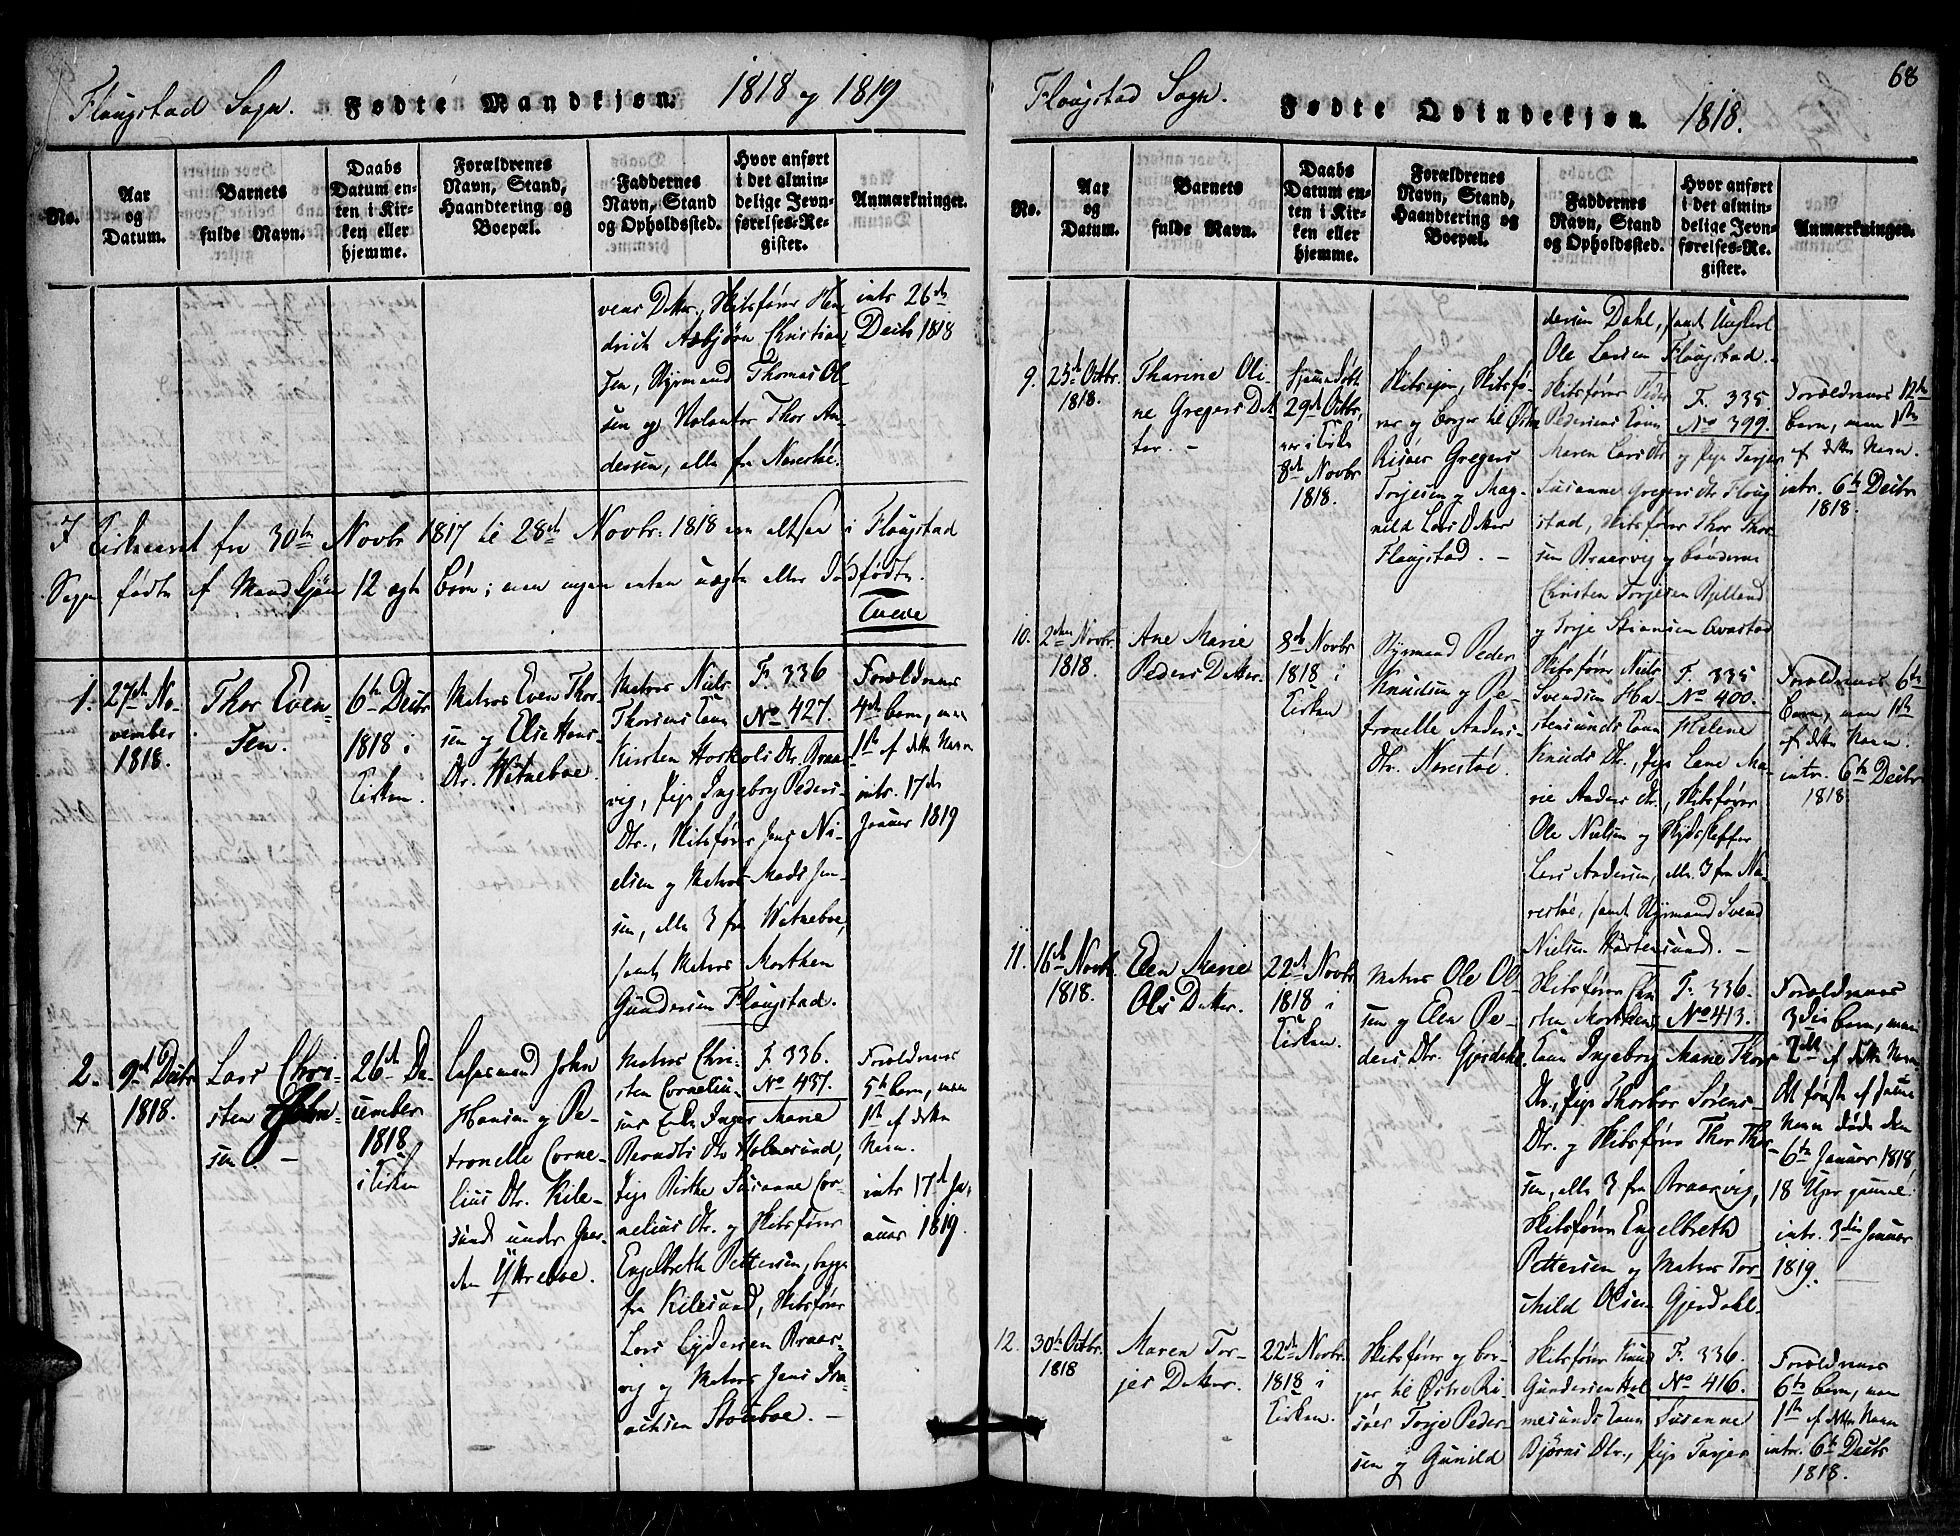 Flaugstad Sogn. Fødte Mandkjøn. 1818 og 1819
No.
Aar
og
Datum.
Barnets
fulde Navn.
Daabs
Datum en-
ten i Kir-
ken eller
hjemme.
Forældrenes
Navn, Stand,
Haandtering og
Boepæl.
Faddernes
Navn, Stand
og Opholdssted.
Hvor anført
i det almin-
delige Jevn-
førelses-Re-
gister.
Anmærkninger.
vens Datter, Skibsfører Hen-
drich Asbjørn Christian-
sen, Styrmand Thomas Ol-
sen og Thor An-
dersen, alle fra Narestøe.
intr. 26de
Decbr 1818
I Kirkeaaret fra 30te Novbr 1817 til 28de Novbr. 1818 ere altsaa i Flaugstad
Sogn fødte af Mandkjøn 12 ægte Børn; men ingen enten uægte eller Dødfødte.
Tuede
1.
27de No-
vember
1818.
Thor Even-
sen.
6te Decbr
1818 i
Kirken.
Matros Even Thor-
sen og Else Hans-
Dtr. Watneboe.
Matros Niels
Thorsens Kone
Kirsten Horskols Dtr. Braar-
vig, Pige Ingeborg Peders-
Dtr., Skibsfører Jens Ni-
elsen og Matros Mads Jen-
sen, alle 3 fra Watneboe,
samt Matros Morthen
Gundersen Flaugstad.
F. 336
No 427.
Forældrenes
4de barn, men
1ste af dette Navn
intr. 17de
Januar 1819
2.
+
9de Decbr
1818.
Lars Chri-
sten John-
sen. -
26de De-
cember
1818
i Kirken
John
Hansen og Pe-
tronelle Corne-
lius Dtr. Kile-
sund under Gaar-
den Yttreboe.
Matros Chri-
sten Cornelius-
sens Enke Inger Marie
Berndts Dtr Holmesund,
Pige Birthe Susanne Cor-
nelius Dtr. og Skibsfører
Engelbreth Pettersen, begge
fra Kilesund, Skibsfører
Lars Eydersen Braar-
vig og Matros Jens Isa-
achsen Stoueboe. -
F. 336.
No 437.
Forældrenes
5te barn, men
1ste af dette
Navn.
intr 17de Ja-
nuar 1819.
68
Flaugstad Sogn. Fødte Qvindekjøn. 1818.
No.
Aar
og
Datum.
Barnets
fulde Navn.
Daabs
Datum en-
ten i Kir-
ken eller
hjemme.
Forældrenes
Navn, Stand,
Haandtering og
Boepæl.
Faddernes
Navn, Stand
og Opholdssted.
Hvor anført
i det almin-
delige Jevn-
førelses-Re-
gister.
Anmærkninger.
dersen Dahl, samt Ungkarl
Ole Larsen Flaugstad. -
9.
25de Octbr.
1818.
Tharine Oli-
ne Gregers Dat
ter. -
hjemmedøbt
29de Octbr,
var i Kirke
8de Novbr
1818.
Skibsejer, Skibsfø-
rer og Borger til Østre
Risøer Gregers
Torjesen og Mag-
nild Lars Datter
Flaugstad. -
Skibsfører Peder
Pedersens Kone
Maren Lars Dtr og Pige Torjer
Susanne Gregers Dtr Flaug
stad, Skibsfører Thor Thor-
sen Braarvig og Bønderne
Christen Torjesen Bjelland
og Torje Stiansen Qvastad
F. 335
No 399.
Forældrenes 12te
barn, men 1ste
af dette Navn.
intr. 6te Decbr
1818.
10.
2den Novbr.
1818.
Ane Marie
Peders Datter.
8de Novbr
1818 i
Kirken
Styrmand Peder
Knudsen og Pe-
tronelle Anders-
Dtr. Narestøe.
Skibsfører Niels
Svendsen Ha-
stensunds Kone Helene
Knuds Dtr., Pige Lene Ma-
rie Anders Dtr., Skibsfører
Ole Nielsen og Skydsskaffer
Lars Andersen, alle 3 fra Na-
restøe, samt Styrmand Svend
Nielsen Hastensund. -
F. 335
No 400.
Forældrenes 6te
barn, men 1ste
af dette Navn.
intr. 6te Decbr
1818
11.
16de Novbr.
1818.
Elen Marie
Ols Datter.
22de Novbr
1818 i
Kirken.
Matros Ole Ol-
sen og Elen Pe-
ders Dtr. Gjerdahl.
Skibsfører Chri-
sten Mortensens
Kone Ingeborg Marie Thors
Dtr., Pige Thorbor Sørens-
Dtr. og Skibsfører Thor Thor-
sen, alle 3 fra Braarvig,
Skibsfører Engelbreth
Pettersen og Matros Tor-
child Olsen Gjerdahl.
F. 336.
No 413.
Forældrenes
3die barn, men
2det af dette Navn
Det første af samme
Navn døde den
6te Januar 1818,
18 Uger gammel.
intr. 3die Januar
1819.
12.
30te Octbr.
1818
Maren Tor-
jes Datter.
22de Novbr.
1818 i
Kirken.
Skibsfører og bor-
ger til Østre Ri-
søer Torje Peder-
sen og Gunild
Skibsfører Knud
Gundersen Hol-
mesunds Kone Susanne
Bjørns Dtr., Pige Torjer
F. 336.
No 416.
Forældrenes
6te barn, men
1ste af dette Navn
intr. 6te Decbr
1818.